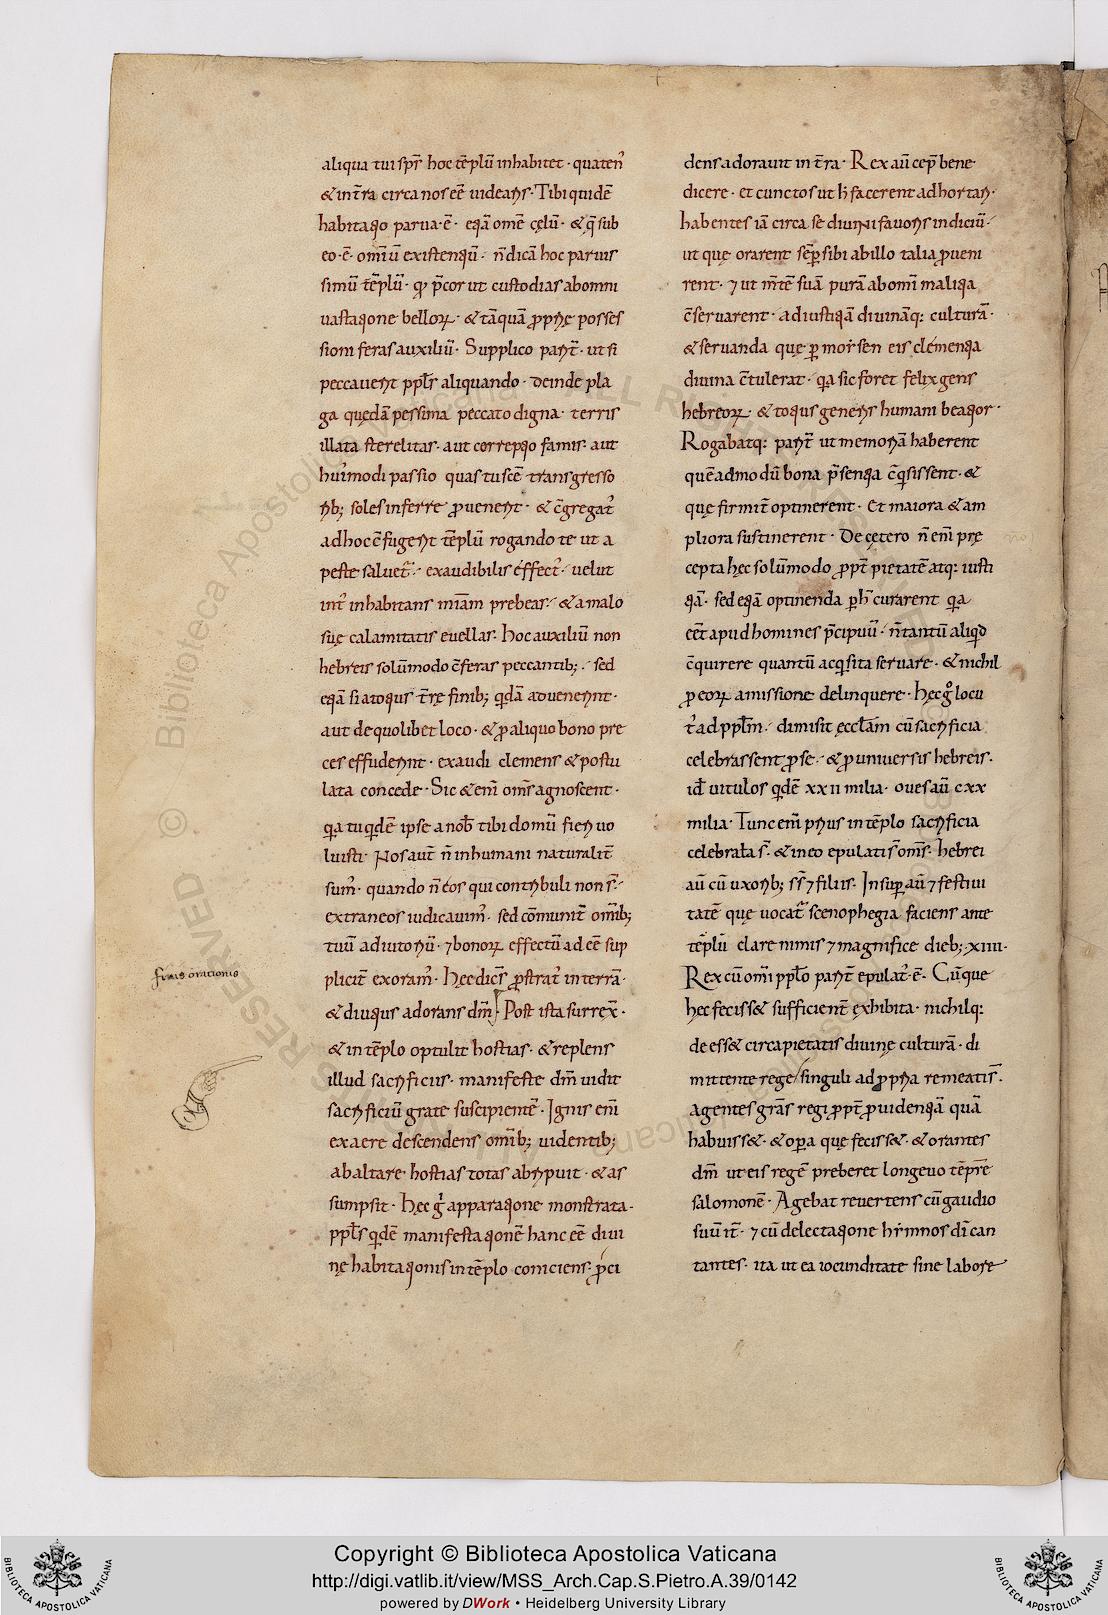 aliqua tui spr̄ hoc tēplū inhabitet · quatenꝰ
& in t̄ra circa nos eē uidearis · Tibi quidē
habitatio parua · ē · & qā omē cęlū · & q̄ sub
eo · ē · omīū existentiū · n̄ dicā hoc paruis
simū tēplū · q̄ p̄cor ut custodias ab omni
uastatione bellorꝝ · & tāquā ꝓprię posses
sioni feras auxiliū · Supplico parit̄ · ut si
peccauerit ppl̄s aliquando · deinde pla
ga quędā pessima peccato digna · terris
illata sterelitas · aut correptio famis · aut
huiꝰmodi passio quas tu scē transgresso
rib; soles inferre ꝓuenerit · & c̄gregatꝰ
ad hoc c̄fugerit tēplū rogando te ut a
peste saluet̄ · exaudibilis effectꝰ · uelut
int̄ inhabitans mīam prebeas · & a malo
suę calamitatis euellas · Hoc auxiliū non
hebreis solūmodo c̄feras peccantib; · sed
etiā si a totius t̄rę finib; qdā aduenerint ·
aut de quolibet loco · & ꝓ aliquo bono pre
ces effuderint · exaudi clemens & postu
lata concede · Sic & enī om̄s agnoscent ·
qa tu qdē ipse a nob̄ tibi domū fieri uo
luisti · Nos aut̄ n̄ inhumani naturalit̄
sumꝰ · quando n̄ eos qui contribuli non s̄ ·
extraneos iudicauimꝰ · sed cōmunit̄ omīb;
tuū adiutoriū · ⁊ bonorꝝ effectū adeē sup
plicit̄ exoramꝰ · Hęc dicēs ꝓstratꝰ in terrā ·
& diutius adorans dm̄ Post ista surrex̄ ·
& in tēplo optulit hostias · & replens
illud sacrificiis · manifeste dm̄ uidit
sacrificiū grate suscipientē · Ignis enī
ex aere descendens omīb; uidentib;
ab altare hostias totas abripuit · & as
sumpsit · Hęc g̊ apparatione monstrata ·
ppl̄s qdē manifestationē hanc eē diui
nę habitationis in tēplo coniciens · ꝓci
finis orationis
dens adorauit in t̄ra · Rex aū cep̄ bene
dicere · et cunctos ut h̄ facerent adhortari ·
habentes iā circa se diuini fauoris indiciū ·
ut quę orarent sēꝑ sibi ab illo talia ꝓueni
rent · ⁊ ut m̄tē suā purā ab omī malitia
c̄seruarent · ad iustitiā diuināq; culturā ·
& seruanda quę ꝑ moysen eis clementia
diuina c̄tulerat · qa sic foret felix gens
hebreorꝝ · & totius generis humani beatior ·
Rogabatq; parit̄ ut memoriā haberent
quēadmodū bona p̄sentia c̄qsissent · &
quę firmit̄ optinerent · Et maiora & am
pliora sustinerent · De cętero n̄ enī pre
cepta hęc solūmodo ꝓpt̄ pietatē atq; iusti
tiā · sed etiā optinenda ꝑ h̄ curarent qa
eēt apud homines p̄cipuū · n̄ tantū aliqd
c̄quirere quantū acqsita seruare · & nichil
ꝓ eorꝝ amissione delinquere · Hęc g̊ locu
tꝰ ad ppl̄m · dimisit ęccl̄am cū sacrificia
celebrassent ꝓ se · & ꝓ uniuersis hebreis ·
id̄ uitulos qdē xxii milia · oues aū cxx
milia · Tunc enī prius in tēplo sacrificia
celebrata s̄ · & in eo epulati s̄ om̄s · hebrei
aū cū uxorib; s̄s ⁊ filiis · Insuꝑ aū ⁊ festiui
tatē que uocat̄ scenophegia faciens ante
tēplū clare nimis ⁊ magnifice dieb; · xiiii ·
Rex cū omī pplo parit̄ epulatꝰ · ē · Cūque
hęc fecisset sufficient̄ exhibita · nichilq;
deesset circa pietatis diuinę culturā · di
mittente rege singuli ad ꝓpria remeatis̄ ·
agentes grās regi ꝓpt̄ ꝓuidentiā quā
habuisset · & oꝑa quę fecisset · & orantes
dm̄ ut eis regē preberet longeuo tēpr̄e
salomonē · Agebat reuertens cū gaudio
suū it̄ · ⁊ cū delectatione hymnos dī can
tantes · ita ut ea iocunditate sine labore
Copyright © Biblioteca Apostolica Vaticana
http://digi.vatlib.it/view/MSS_Arch.Cap.S.Pietro.A.39/0142
powered by DWork • Heidelberg University Library